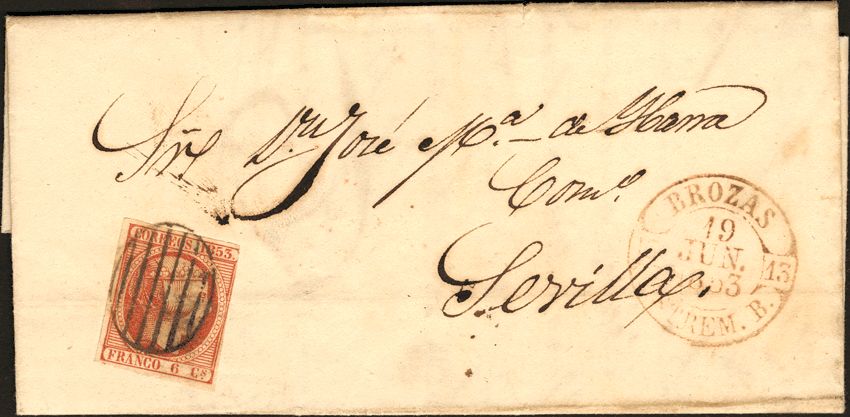 Sr. Dn. José Ma. de Ybarra
Como.
Sevilla.
CORREOS 1853.
FRANCO 6 Cs.
BROZAS
19
JUN.
1853
13
ESTREM. B.